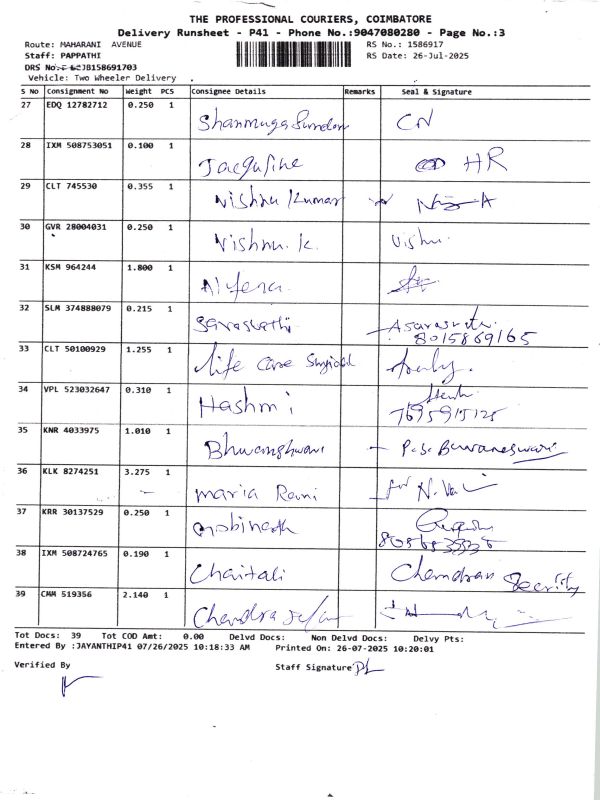 THE PROFESSIONAL COURIERS, COIMBATORE
Delivery Runsheet - P41 - Phone No.:9047080280 - Page No.:3
Route: MAHARANI AVENUE RS No.: 1586917
Staff: PAPPATHI RS Date: 26-Jul-2025
DRS No. JB158691703
Vehicle: Two Wheeler Delivery
S No Consignment No Weight PCS Consignee Details Remarks Seal & Signature
27 EDQ 12782712 0.250 1
ShanmugaSundar CN
28 IXM 508753051 0.100 1
Jacquline HR
29 CLT 745530 0.355 1
Vishnu Kumar
30 GVR 28004031 0.250 1
Vishnu. K. Vishnu.
31 KSM 964244 1.800 1
32 SLM 374888079 0.215 1
Saraswathi
8015869165
33 CLT 50100929 1.255 1
life care Surgical
34 VPL 523032647 0.310 1
Hashmi
7695915125
35 KNR 4033975 1.010 1
P.S. Buvaneswari
36 KLK 8274251 3.275 1
maria Rani for N.
37 KRR 30137529 0.250 1
Gobinath
38 IXM 508724765 0.190 1
Chaitali Chandran Security
39 CMM 519356 2.140 1
Chandra
Tot Docs: 39 Tot COD Amt: 0.00 Delvd Docs: Non Delvd Docs: Delvy Pts:
Entered By :JAYANTHIP41 07/26/2025 10:18:33 AM Printed On: 26-07-2025 10:20:01
Verified By Staff Signature